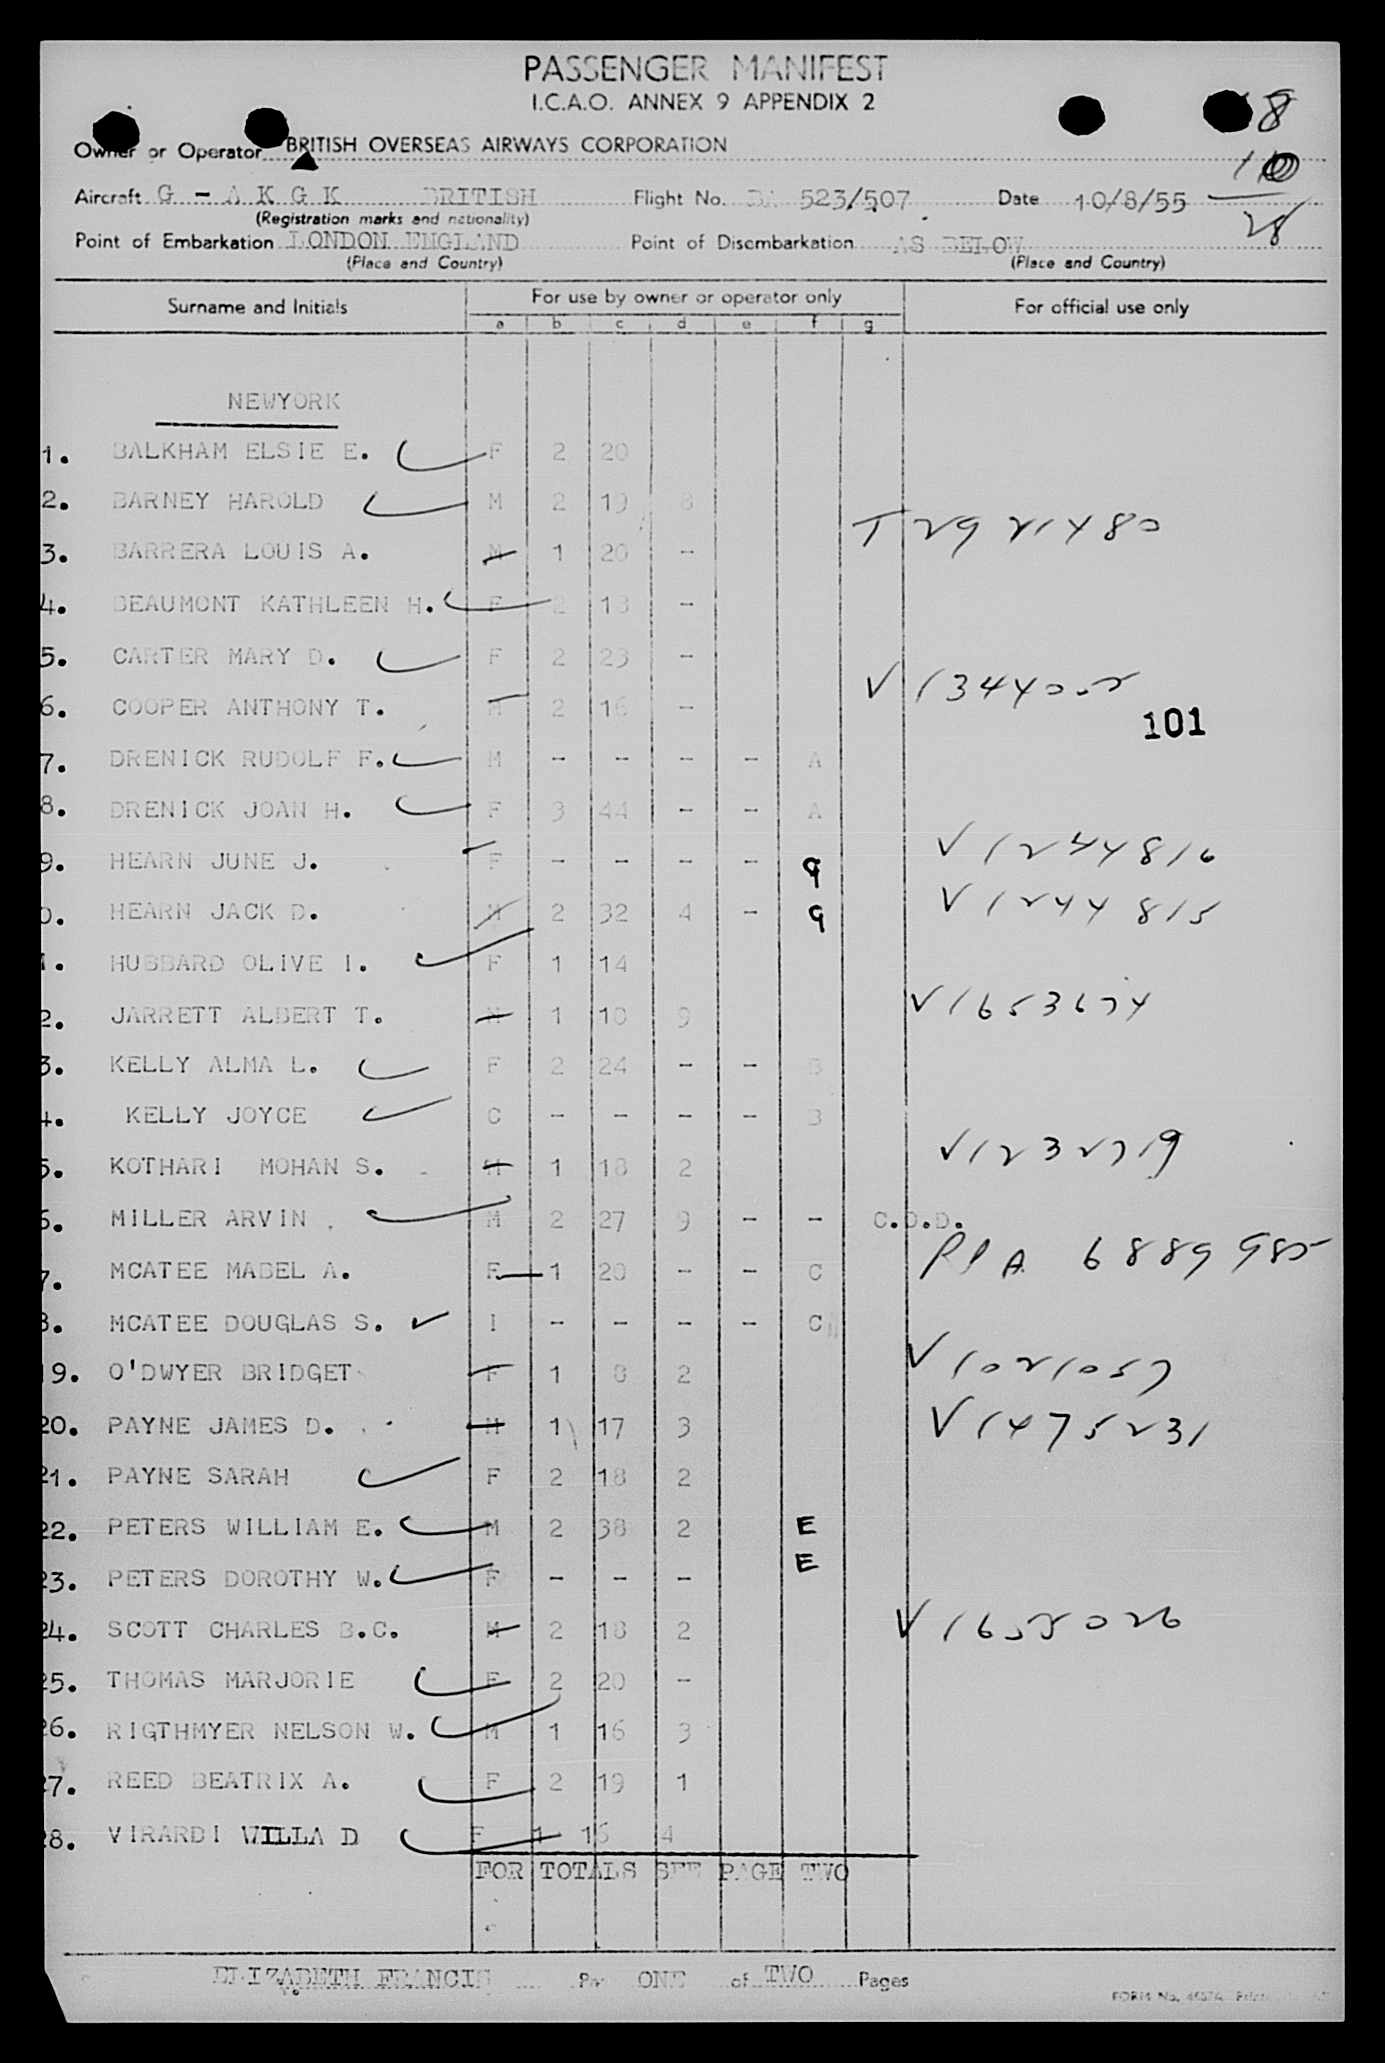 PASSENGER MANIFEST
I.C.A.O. ANNEX 9 APPENDIX 2
8
Owner or Operator BRITISH OVERSEAS AIRWAYS CORPORATION
Aircraft G - A K G K BRITISH Flight No. BA 523/507 Date 10/8/55
(Registration marks and nationality)
28
Point of Embarkation LONDON ENGLAND Point of Disembarkation AS BELOW
(Place and Country) (Place and Country)
Surname and Initials For use by owner or operator only For official use only
a b c d e f g
NEWYORK
1. BALKHAM ELSIE E. F 2 20
2. BARNEY HAROLD M 2 19 8
T2921480
3. BARRERA LOUIS A. M 1 20 -
4. BEAUMONT KATHLEEN H. F 2 18 -
5. CARTER MARY D. F 2 23 -
V1344002
6. COOPER ANTHONY T. M 2 16 -
101
7. DRENICK RUDOLF F. M - - - - A
8. DRENICK JOAN H. F 3 44 - - A
9. HEARN JUNE J. F - - - - G V1244816
0. HEARN JACK D. M 2 32 4 - G V1244815
1. HUBBARD OLIVE I. F 1 14
2. JARRETT ALBERT T. M 1 10 9 V1653674
3. KELLY ALMA L. F 2 24 - - B
4. KELLY JOYCE C - - - - B
5. KOTHARI MOHAN S. M 1 18 2 V1232719
6. MILLER ARVIN M 2 27 9 - - C.O.D.
7. MCATEE MABEL A. F 1 20 - - C 6889985
8. MCATEE DOUGLAS S. I - - - - C
19. O'DWYER BRIDGET F 1 8 2 V1021057
20. PAYNE JAMES D. M 1 17 3 V1475231
21. PAYNE SARAH F 2 18 2
22. PETERS WILLIAM E. M 2 38 2 E
23. PETERS DOROTHY W. F - - - E
24. SCOTT CHARLES B.C. M 2 18 2 V1655026
25. THOMAS MARJORIE F 2 20 -
26. RIGTHMYER NELSON W. M 1 16 3
27. REED BEATRIX A. F 2 19 1
28. VIRARDI WILLA D F 1 16 4
FOR TOTALS SEE PAGE TWO
ELIZABETH FRANCIS ONE of TWO Pages
FORM No.